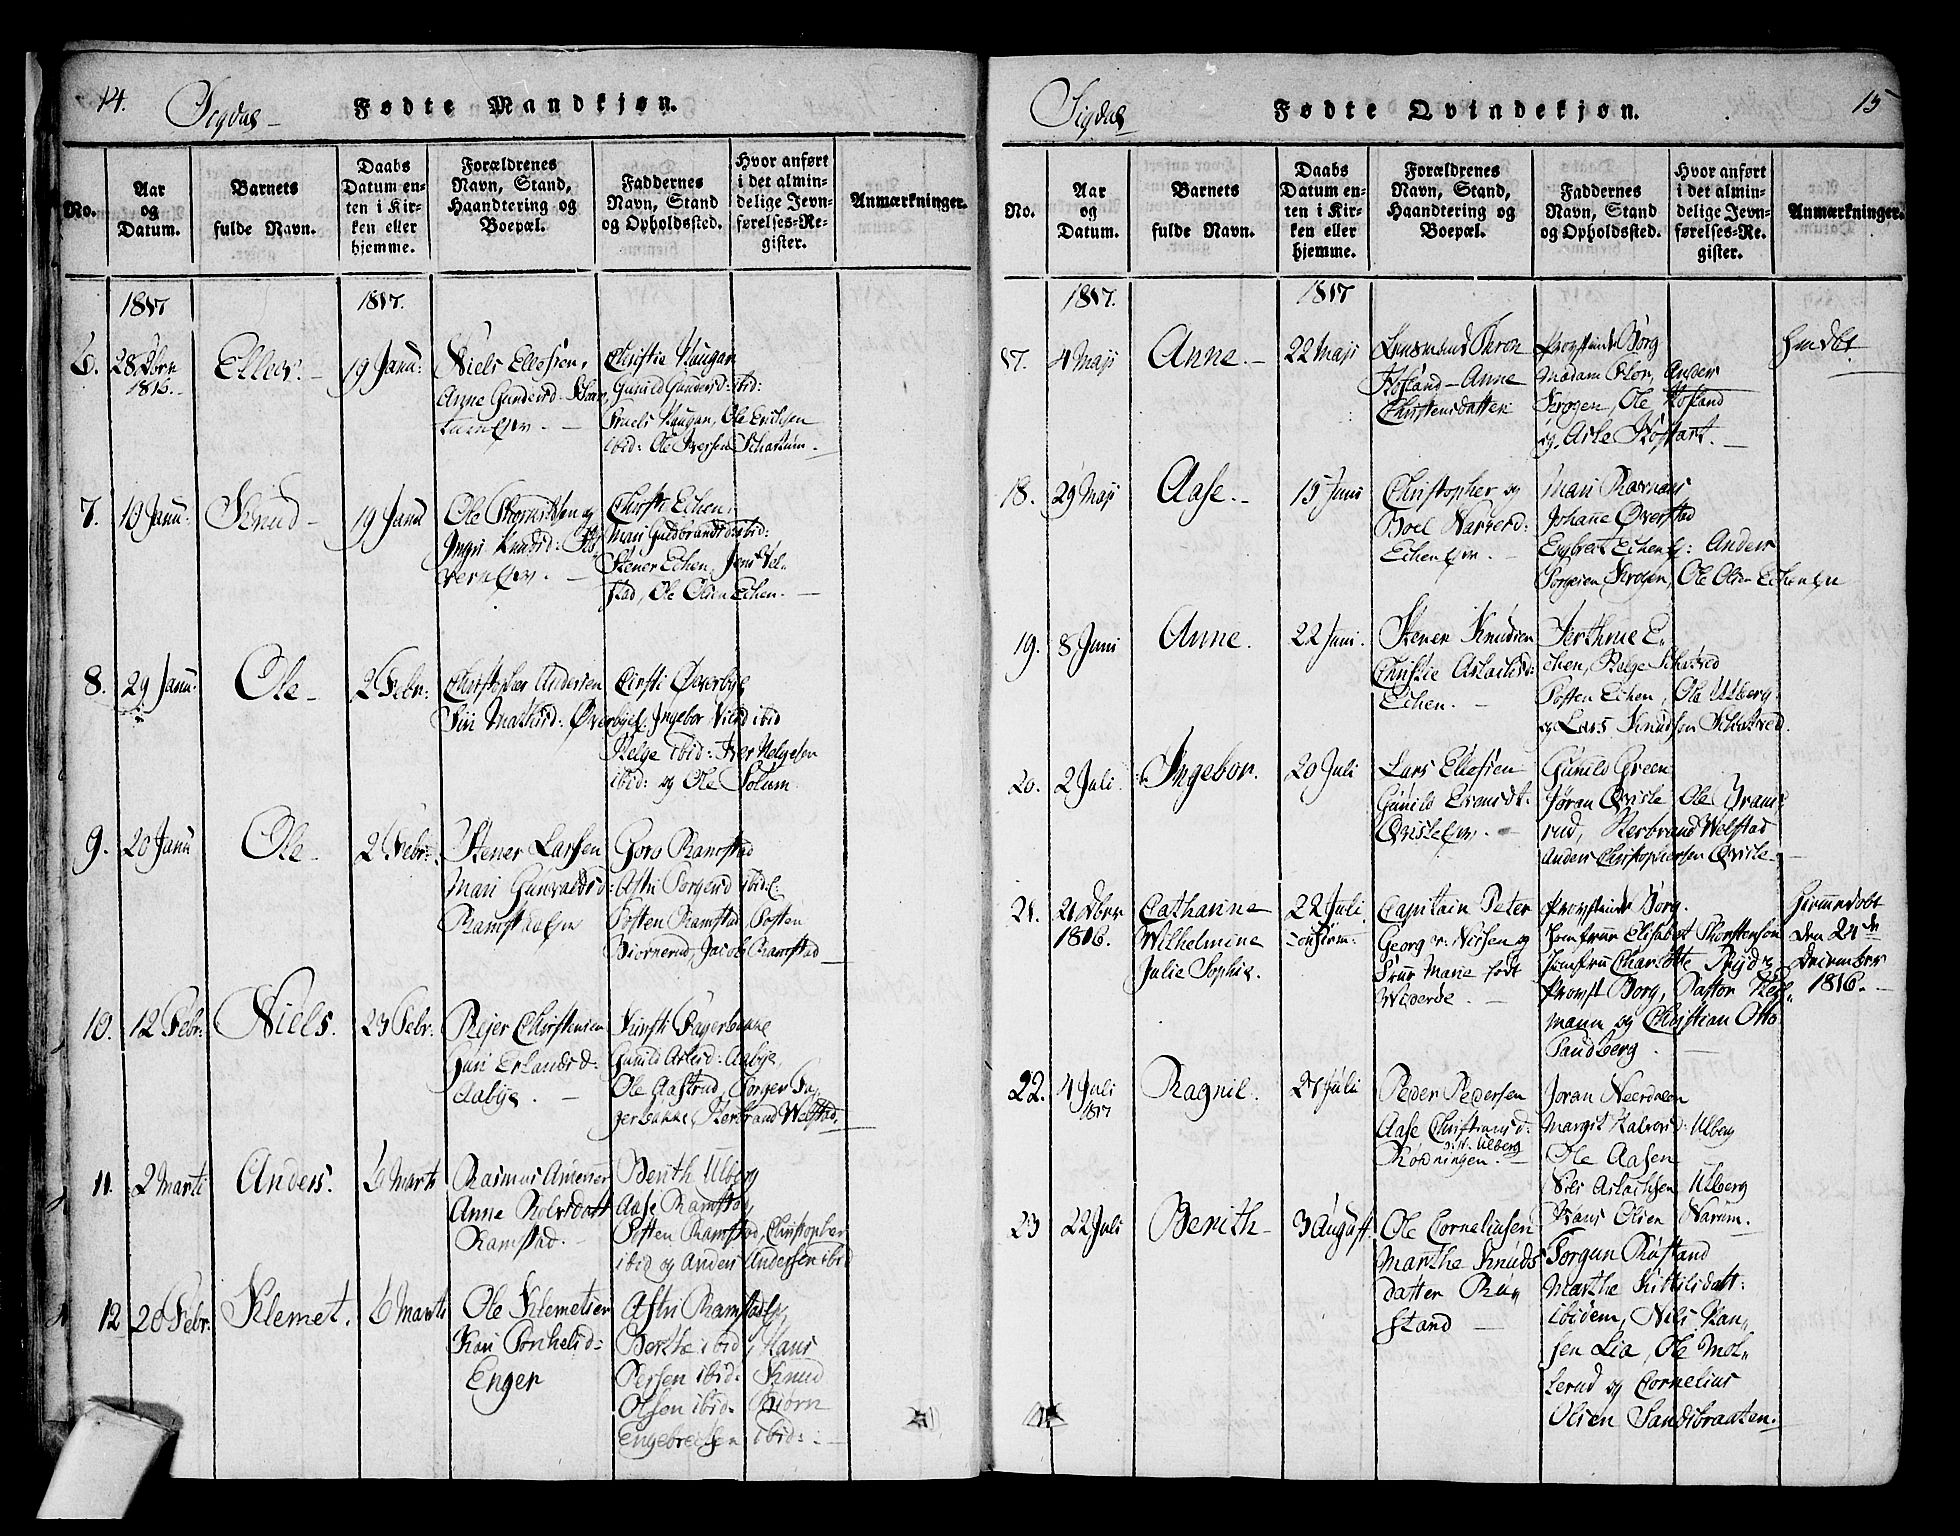 14.
Sigdal
Fødte Mandkjøn.
No.
Aar
og
Datum.
Barnets
fulde Navn.
Daabs
Datum en-
ten i Kir-
ken eller
hjemme.
Forældrenes
Navn, Stand,
Haandtering og
Boepæl.
Faddernes
Navn, Stand
og Opholdssted.
Hvor anført
i det almin-
delige Jevn-
førelses-Re-
gister.
Anmærkninger.
1817
1817.
6.
28 Dbr
1816.
Ellev.
19 Janu:
Niels Ellefsen,
Anne Gunders
Christie Haugan
Gunild Gundersd: ibid:
Niels Haugan, Ole Erichsen
ibid: Ole Iversen Schartum.
7.
10 Janu:
Knud
19 Janu
Ole
og
Ingri Knudsd:
Christi Echen,
Mari Guldbrandsd: ibid:
Stener Echen, Jens Vel-
stad, Ole Olsen Echen.
8.
29 Janu:
Ole
2 Febr:
Christopher Andersen
Siri Mathisd: Øverbye
Cirsti Øverbye
Ingebor ibid
Helge ibid: Iver Helgesen
ibid: og Ole Solum.
9.
20 Janu
Ole
2 Febr:
Stener Larsen
Mari Gunvaldsd:
Ramstad
Goro Ramstad
Astri Torgersd ibid:
Tosten Ramstad Tosten
Biørnerud, Jacob Ramstad
10.
12 Febr:
Niels.
23 Febr:
Rejer Christensen
Guri Erlandsd:
Aabye.
Kirsti Fagerbakke
Gunild Aslesd: Aabye,
Ole Aastrud, Torger Fa-
gerbakke, Herbrand Welstad.
11.
2 Marti
Anders.
6 Marti
Rasmus
Anne Rolvsdatt
Ramstad.
Berith Ulberg
Aase Ramstad
Tosten Ramstad, Christopher
ibid og Anders Andersen ibid
12
20 Febr:
Klemet.
6 Marti
Ole Klemetsen
Kari Torchelsd:
Enger
Astri Ramstad,
Berthe ibid, Hans
Persen ibid. Knud
Olsen ibid. Biørn
Engebretsen ibid:
15
Sigdal
Fødte Qvindekjøn.
No.
Aar
og
Datum.
Barnets
fulde Navn.
Daabs
Datum en-
ten i Kir-
ken eller
hjemme.
Forældrenes
Navn, Stand,
Haandtering og
Boepæl.
Faddernes
Navn, Stand
og Opholdssted.
Hvor anført
i det almin-
delige Jevn-
førelses-Re-
gister.
Anmærkninger.
1817.
1817
17.
4 Maji
Anne.
22 Maji
Lensmand Thron
Hofland - Anne
Christensdatter
Provstinde Borg
Madam Flor, Anders
Ole Hofland
og Asle
18.
29 Maji
Aase.
15 Juni
Christopher og
Boel
Echen
Mari
Johanne Øverstad
Engbret Echen Anders
Ole Olsen Echen
19.
8 Juni
Anne.
22 Juni.
Stener Knudsen
Christie Aslachsd:
Echen.
E-
chen, Helge
Tosten Echen, Ole Ulberg
og Lars Knudsen
20.
2 Juli
Ingebor.
20 Juli
Lars Ellefsen
Gunild Evensdt.
Qvisle
Gunild Green
Jøran Qvisle Ole
rud, Herbrand Welstad
Anders Christophersen Qvisle
21.
21 Dbr
1816.
Catharine
Wilhelmine
Julie Sophie.
22 Juli
confirm:
Capitain Peter
Georg v: Nissen og
Frue Marie født
Wiverde.
Provstinde Borg.
Jomfrue Elisabet Thorstensen
Jomfru Charlotte
Provst Borg, Pastor
mann og Christian Otto
Sandberg.
Hiemmedøbt
den 24de
December
1816.
22.
4 Juli
1817
Ragnil.
27 Juli
Peder Pedersen
Aase Christiansd:
Ulberg
Rodningen.
Joran
Margit Halvorsd: Ulberg
Ole Aasen
Nils Aslachsen, Ulberg
Hans Olsen Narum.
23
22 Juli
Berith
3 August
Ole Corneliusen
Marthe Knuds
datter Ru-
stand
Torgun Rustand
Marthe Kittilsdatt:
ibidem, Nils Han-
sen Lia, Ole Mol-
lerud og Cornelius
Olsen Sandsbraaten.